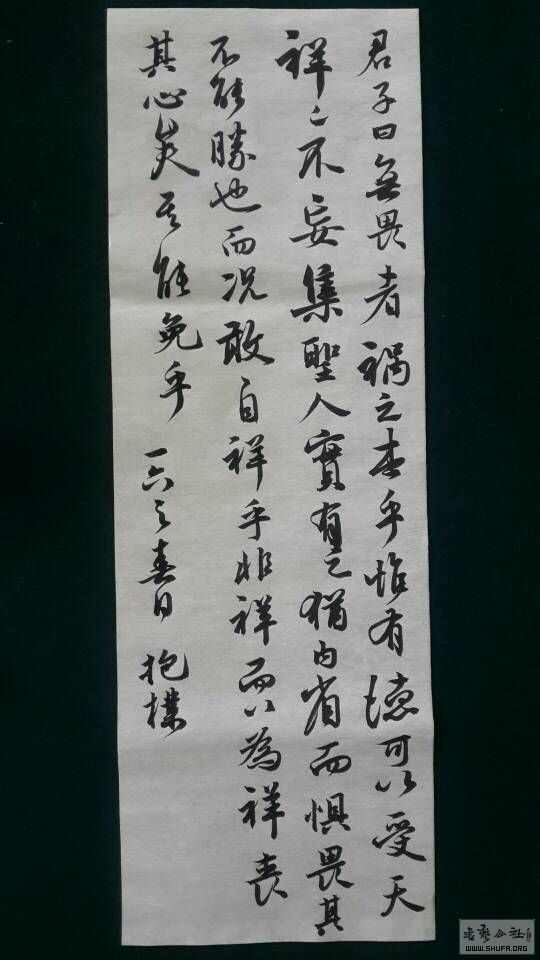 君子曰無畏者禍之本乎惟有德可以受天
祥々不妄集聖人實有之猶内省而惧畏其
不能勝也而况敢自祥乎非祥而以為祥喪
其心矣其能免乎 一六之春日 抱樸
书艺公社
WWW.SHUFA.ORG